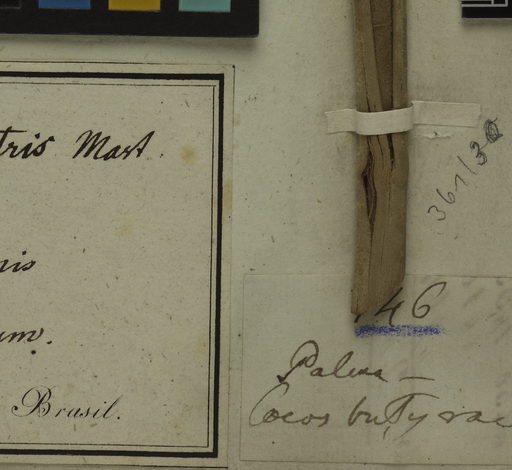 tris Mart.
ris
um.
Brasil.
361/30
146
Palma —
Cocos butyrac